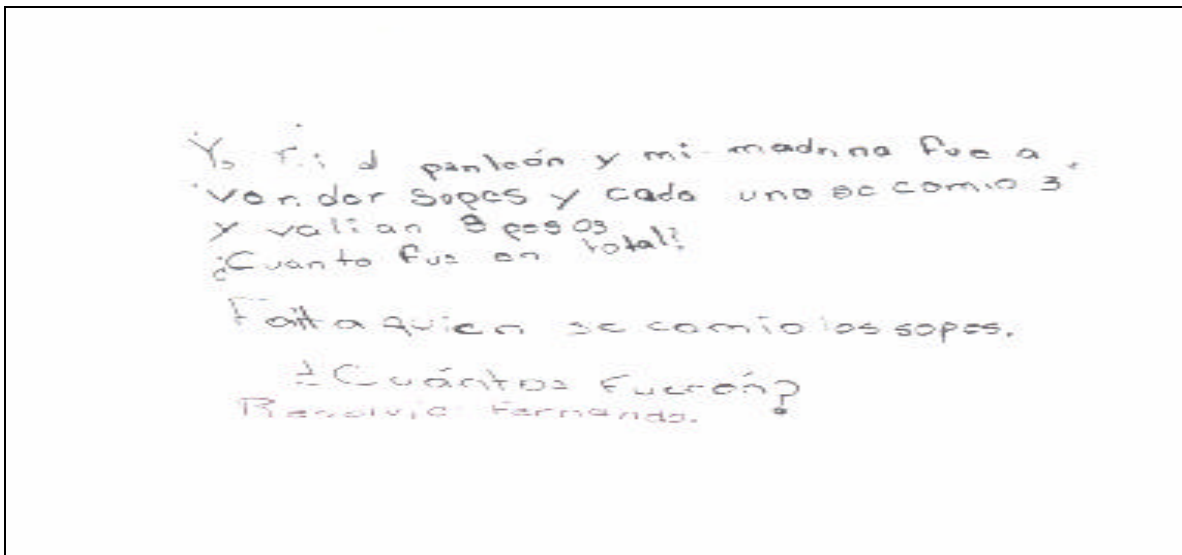 Yo fui al panteón y mi madrina fue a
vender sopes y cada uno se comio 3
y valian 8 pesos
¿Cuanto fue en total?
Falta quien se comio los sopes.
¿Cuántos fuerón?
Resolvio Fernando.